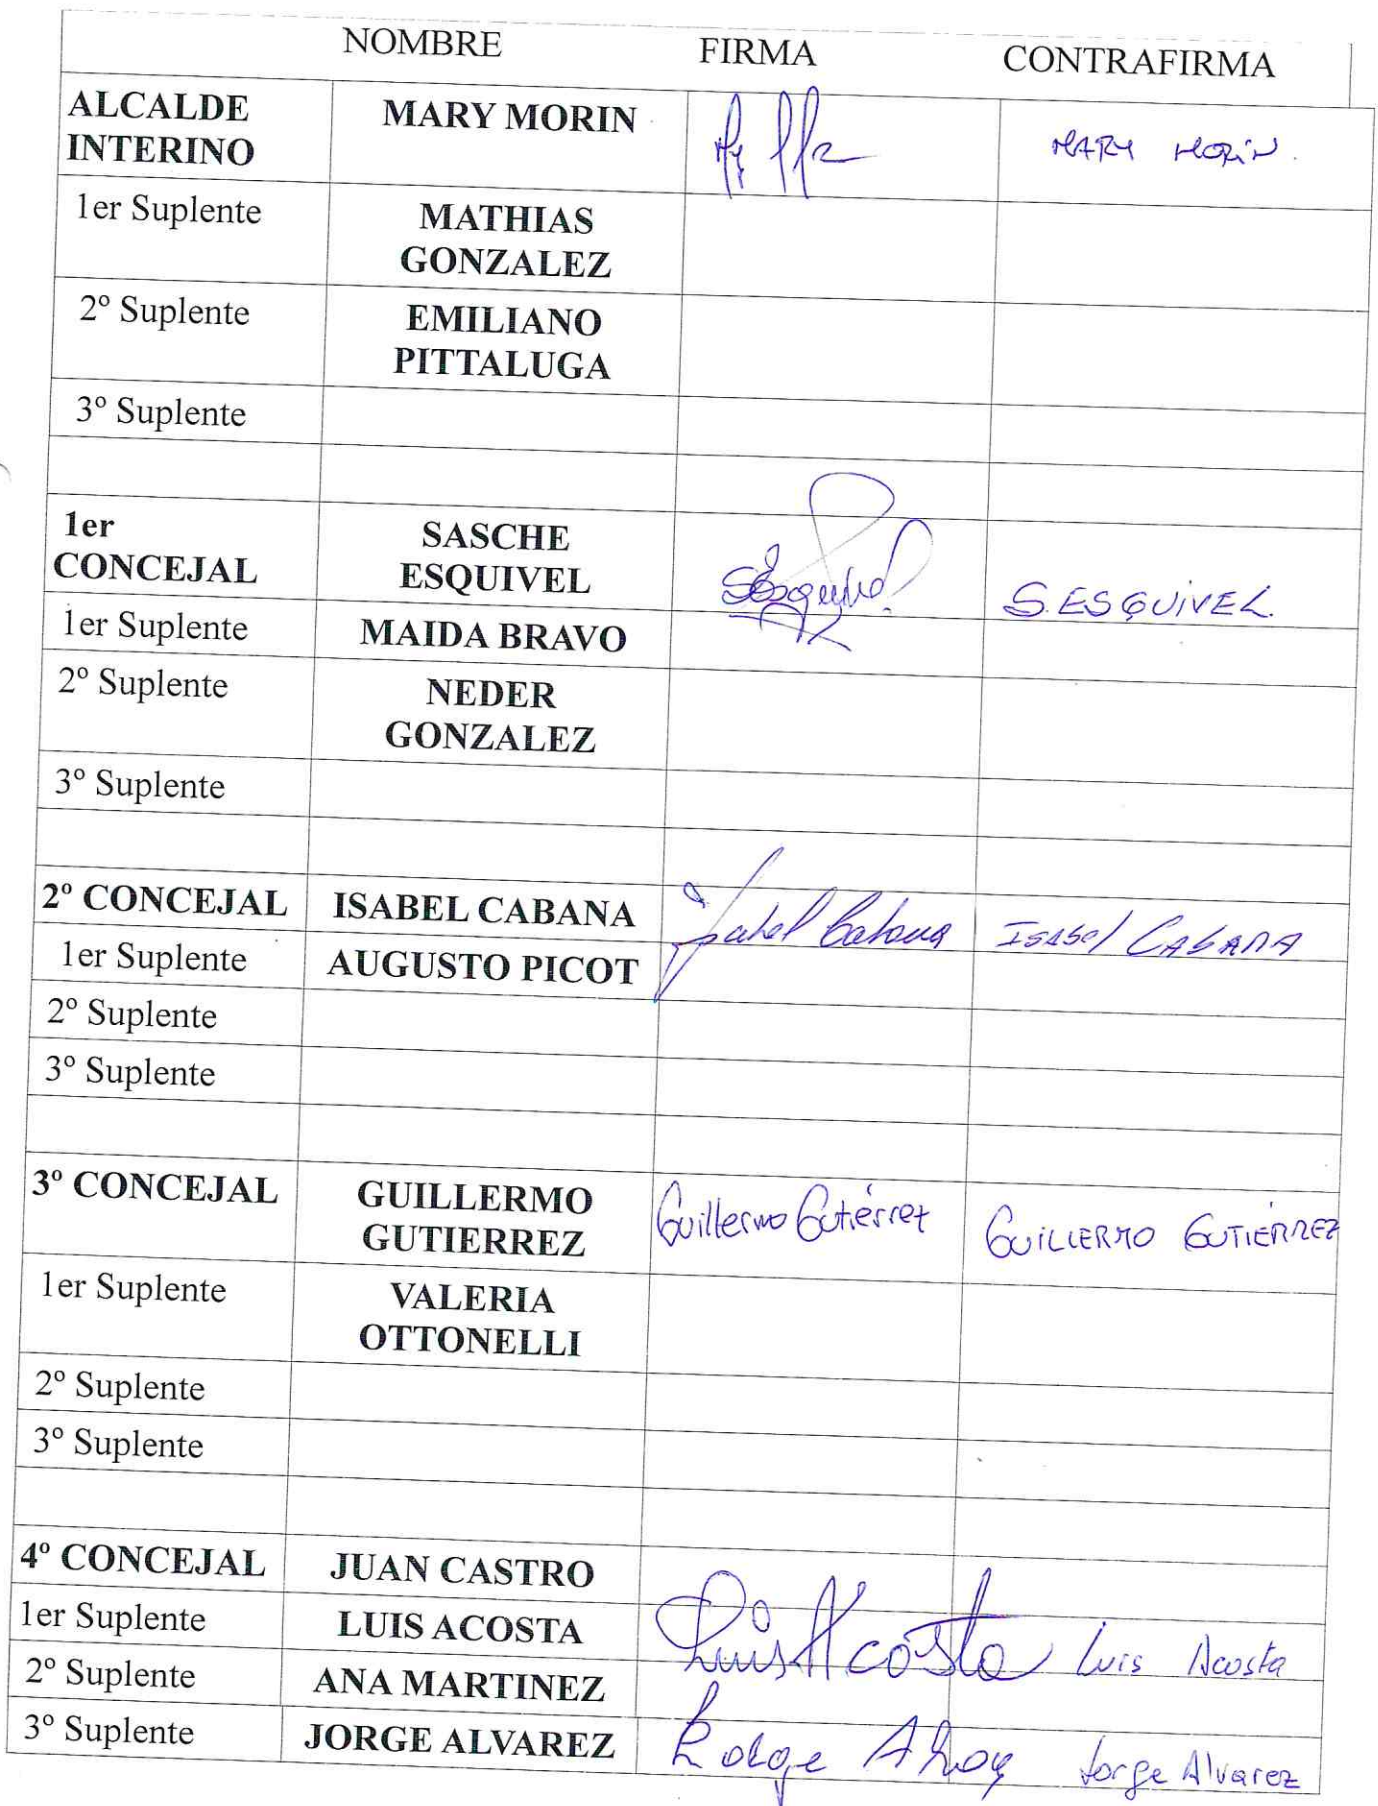 NOMBRE FIRMA CONTRAFIRMA
ALCALDE MARY MORIN MARY MORIN.
INTERINO
1er Suplente MATHIAS
GONZALEZ
2º Suplente EMILIANO
PITTALUGA
3º Suplente
1er SASCHE
CONCEJAL ESQUIVEL SEsquivel S. ESQUIVEL.
1er Suplente MAIDA BRAVO
2º Suplente NEDER
GONZALEZ
3º Suplente
2º CONCEJAL ISABEL CABANA Isabel Cabana ISABEL CABANA
1er Suplente AUGUSTO PICOT
2º Suplente
3º Suplente
3º CONCEJAL GUILLERMO Guillermo Gutiérrez GUILLERMO GUTIÉRREZ
GUTIERREZ
1er Suplente VALERIA
OTTONELLI
2º Suplente
3º Suplente
4º CONCEJAL JUAN CASTRO
1er Suplente LUIS ACOSTA Luis Acosta Luis Acosta
2º Suplente ANA MARTINEZ
3º Suplente JORGE ALVAREZ Jorge Alvarez